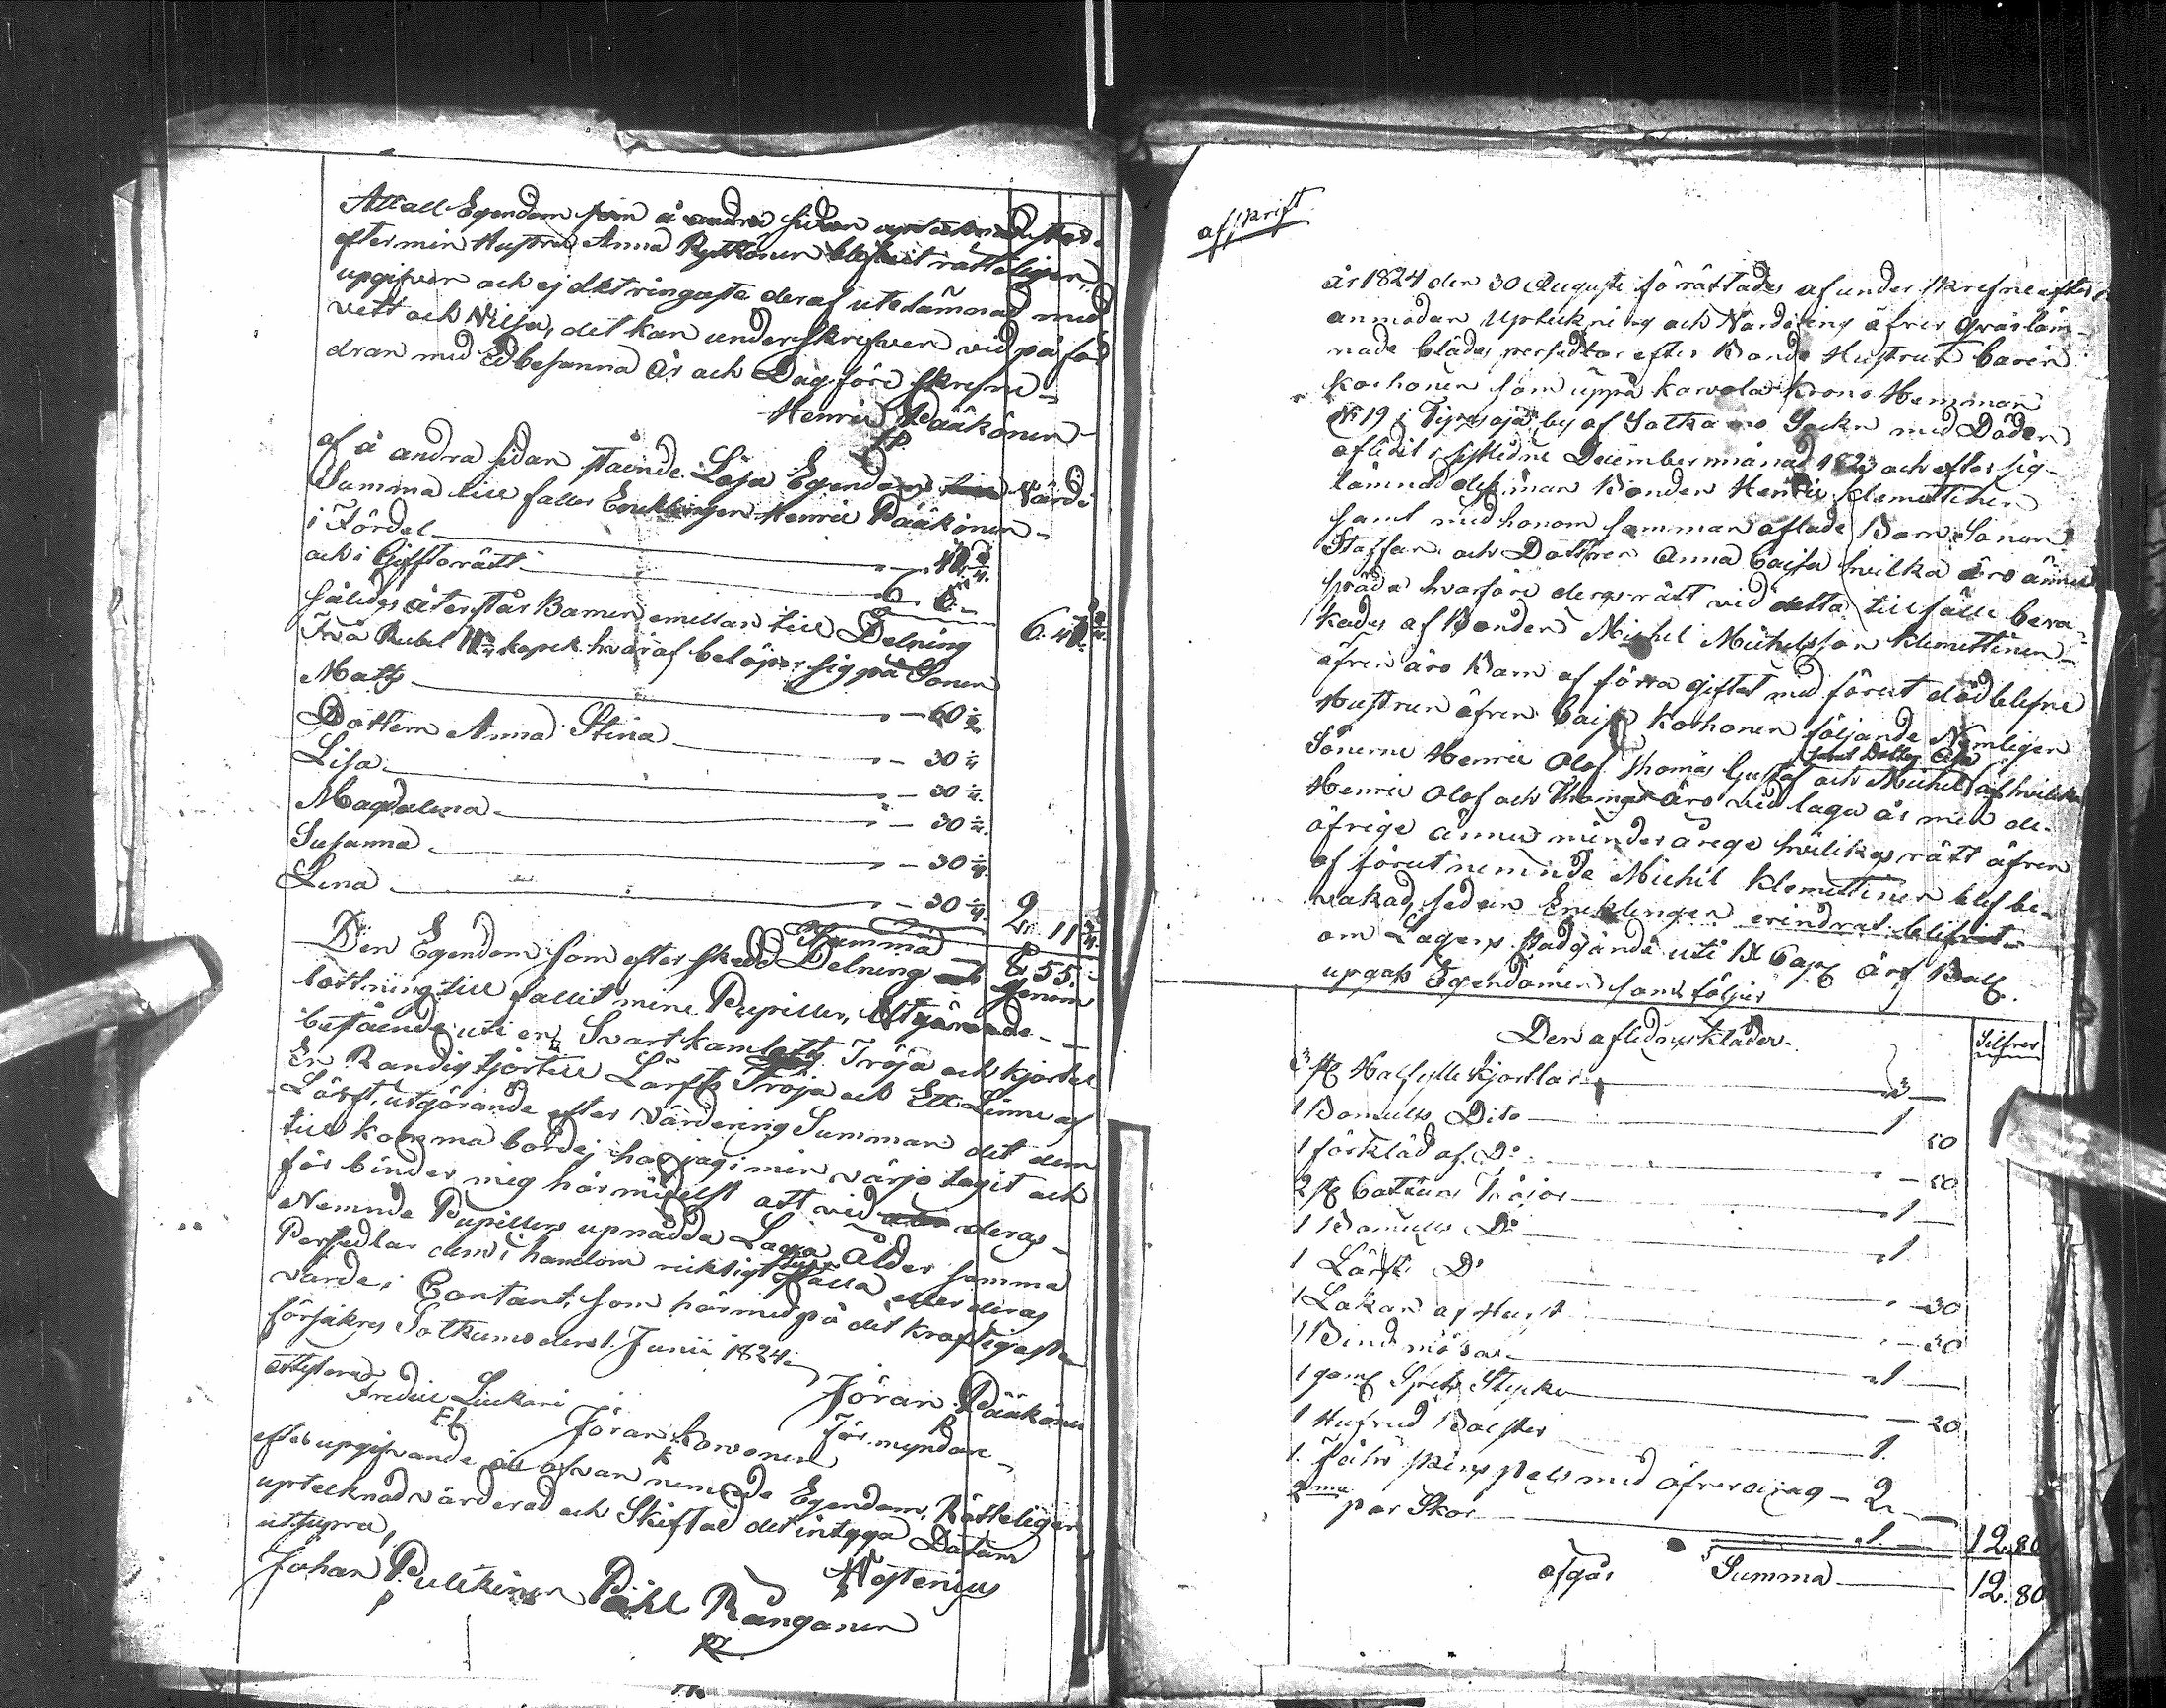 Att all Egendom som å andra sidan upteknad
efter min Hustru Anna Rytkönen blefvit rätteligen
upgifven och ej det ringaste deraf utelämnad med
vett och Vilja, det kan underskrefven vid på for
dran med Ed besanna År och Dag före skrefne
Henric Pääkönen
HP
af å andra sidan stående Lösa Egendoms Värde
Summa till faller Enklingen Henric Pääkönen
i Fördel
och i Gifftorätt 6.
således återstår Barnen emellan till Delning
Två Rubel kopek hvaraf belöper sig på Sonen
Matts — 60 1/2
Dottern Anna Stina — 30 1/4
Lisa — 30 1/4
Magdalena — 30 1/4
Susanna — 30 1/4
Lena — 30 1/4 2. 11 3/4
Summa 8 55.
Den Egendom som efter skedd Delning genom
lottning till fallit mine Pupiller, Utgörande
bestående uti en Svart kamlotts Tröja och kjortel
En Randig kjortell Lärfts Tröja och Ett Linne af
Lärft, utgörande efter Värdering Summan det dem
till komma bordej har jag i min värjo tagit och
för binder mig härmedelst att vid deras
Nemnde Pupillers upnådda Laga Ålder samma
Persedlar dem i handom riktigt stälia eller deras
värde i Contant, som härmed på det kraftigaste
försäkres Sotkamo den 1. Junii 1824.
attesterad Jöran Pääkönen
Fredric Liukari P
FL Jöran Korvonen Förmyndare
K
efter upgifvande är ofvan nemnde Egendom, Rätteligen
uptecknad värderad och Skiftad det intyga Datum
utsupra, Westenius
Johan Pulkinen Påhl Kånganen
P PK
afskrift
år 1824 den 30 Augusti förrättades af under skrefne efter
anmodan Uptekning och Värdering öfver qvarläm-
nade kläder persedlar efter Bonde Hustrun Carin
Korhonen som uppå Karvola Krono Hemman
No 19 i Tipasoja by af Sotkamo Sockn med Döden
aflidit sistledne December månad 1823 och efter sig
lämnad dess man Bonden Henric Klemettinen
samt med honom samman aflade Barn Sonen
Staffan och Dottren Anna Caisa hvilka äro ännu
späda hvarföre deras rätt vid detta tillfälle beva
kades af Bonden Michel Michelsson Klemettinen
äfven äro Barn af förra giftet med förut död blefne
Hustrun äfven Caisa Korhonen följande Nämligen
Sönerne Henric Olof Thomas Gustaf och Michel samt Dotter Caisa af hvilka
Henric Olof och Thomas äro vid laga år men de
öfrige ännu minder årige hvilkas rätt äfven
af förutnemnde Michel Klemettinen blef be-
vakad, sedan Enklingen erindrad blifvit
om Lagens stadgande uti IX Cap. Ärf. Balk.
upgafs Egendomen som följer
Silfver
Den aflidnes kläder
3 st Halfylle kjortlar — 3 —
1 Bomulls Dito — 1 50
1 förkläd af Do — 50
2 st Cattuns Tröjor — 1 —
1 Bomulls Do — 1
1 Lärfts Do — 30
1 Lakan af — 30
1 Bindmössa — 1 —
1 gam. Spets Stycke — 20
1 Hufvud Bolster — 1.
1. Fåhrskins pels med öfverdrag — 2. —
2 par Skor — 1. — 12. 80
afgår Summa — 12. 80